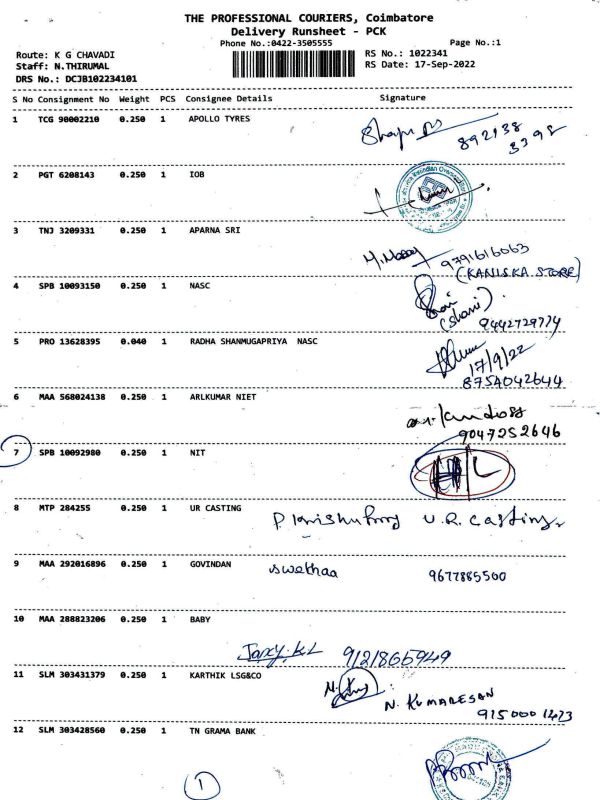 THE PROFESSIONAL COURIERS, Coimbatore
Delivery Runsheet - PCK
Phone No.:0422-3505555 Page No.:1
Route: K G CHAVADI RS No.: 1022341
Staff: N.THIRUMAL RS Date: 17-Sep-2022
DRS No.: DCJB102234101
S No Consignment No Weight PCS Consignee Details Signature
1 TCG 90002210 0.250 1 APOLLO TYRES
892138
3398
2 PGT 6208143 0.250 1 IOB
3 TNJ 3209331 0.250 1 APARNA SRI
9791616063
(KANISKA STORE)
4 SPB 10093150 0.250 1 NASC
(Shani)
9442729774
5 PRO 13628395 0.040 1 RADHA SHANMUGAPRIYA NASC
17/9/22
8754042644
6 MAA 568024138 0.250 1 ARLKUMAR NIET
9047252646
7 SPB 10092980 0.250 1 NIT
8 MTP 284255 0.250 1 UR CASTING
U.R. Casting
9 MAA 292016896 0.250 1 GOVINDAN
swethaa 9677885500
10 MAA 288823206 0.250 1 BABY
9121865949
11 SLM 303431379 0.250 1 KARTHIK LSG&CO
N. KUMARESAN
915000 1423
12 SLM 303428560 0.250 1 TN GRAMA BANK
1